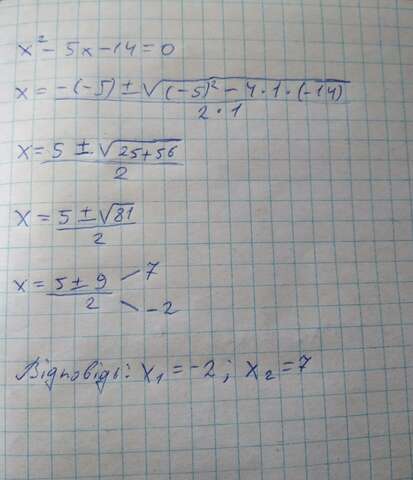 x² - 5x - 14 = 0
x = -(-5) ± √(-5)² - 4 · 1 · (-14) / 2 · 1
x = 5 ± √25+56 / 2
x = 5 ± √81 / 2
x = 5 ± 9 / 2 7 -2
Відповідь: x₁ = -2; x₂ = 7